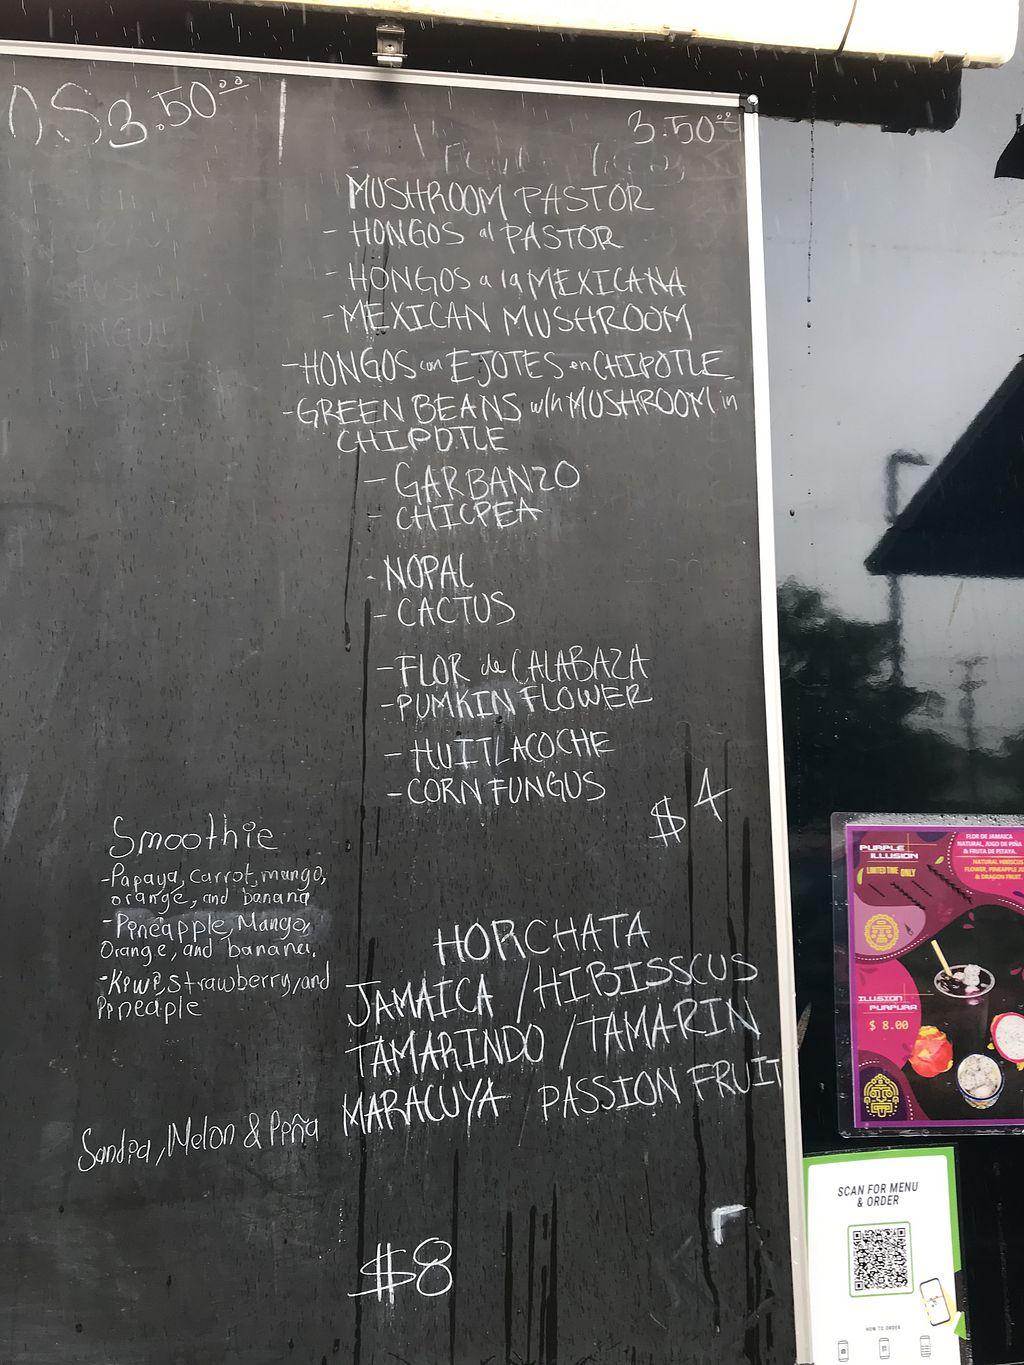 3.50⁰⁰
3.50⁰⁰
MUSHROOM PASTOR
- HONGOS al PASTOR
- HONGOS a la MEXICANA
- MEXICAN MUSHROOM
- HONGOS con EJOTES en CHIPOTLE
- GREEN BEANS w/n MUSHROOM in
CHIPOTLE
- GARBANZO
- CHICPEA
- NOPAL
- CACTUS
- FLOR de CALABAZA
- PUMKIN FLOWER
- HUITLACOCHE
- CORN FUNGUS
$4
Smoothie
- Papaya, carrot, mango,
orange, and banana
- Pineapple, Mango,
Orange, and banana.
- Kiwi, strawberry, and
Pineaple
HORCHATA
JAMAICA / HIBISSCUS
TAMARINDO / TAMARIN
MARACUYA PASSION FRUIT
Sandia, Melon & Piña
$8
PURPLE
ILLUSION
LIMITED TIME ONLY
FLOR DE JAMAICA
NATURAL, JUGO DE PIÑA
& FRUTA DE PITAYA.
NATURAL HIBISCUS
FLOWER, PINEAPPLE JU
& DRAGON FRUIT.
ILUSION
PURPURA
$ 8.00
SCAN FOR MENU
& ORDER
HOW TO ORDER